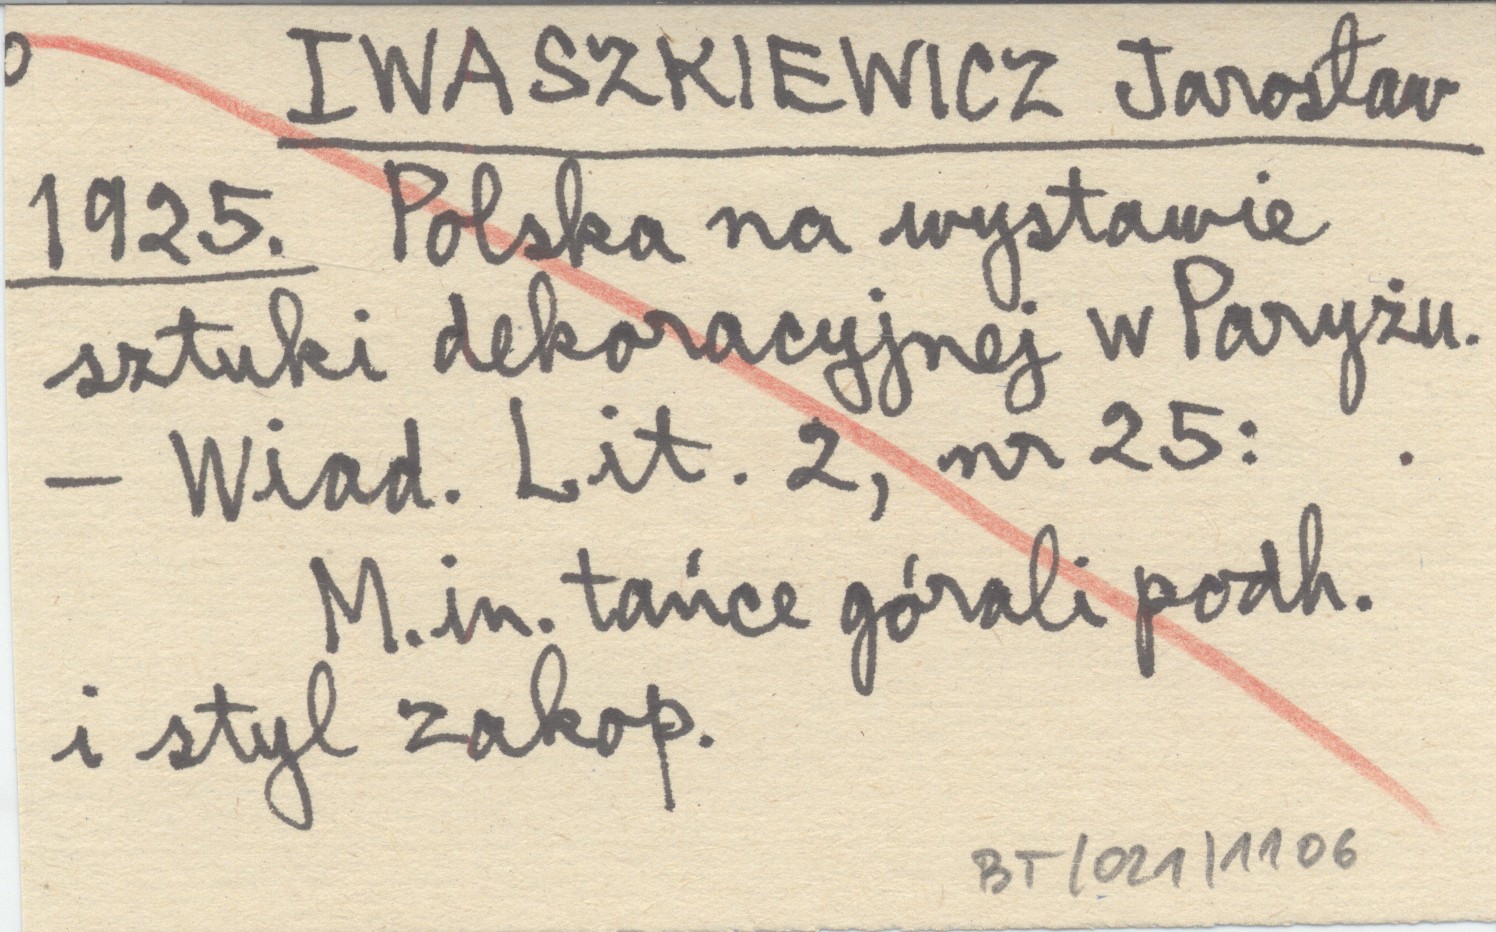 o IWASZKIEWICZ Jarosław
1925. Polska na wystawie
sztuki dekoracyjnej w Paryżu.
– Wiad. Lit. 2, nr 25: .
M.in. tańce górali podh.
i styl zakop.
BT/021/1106